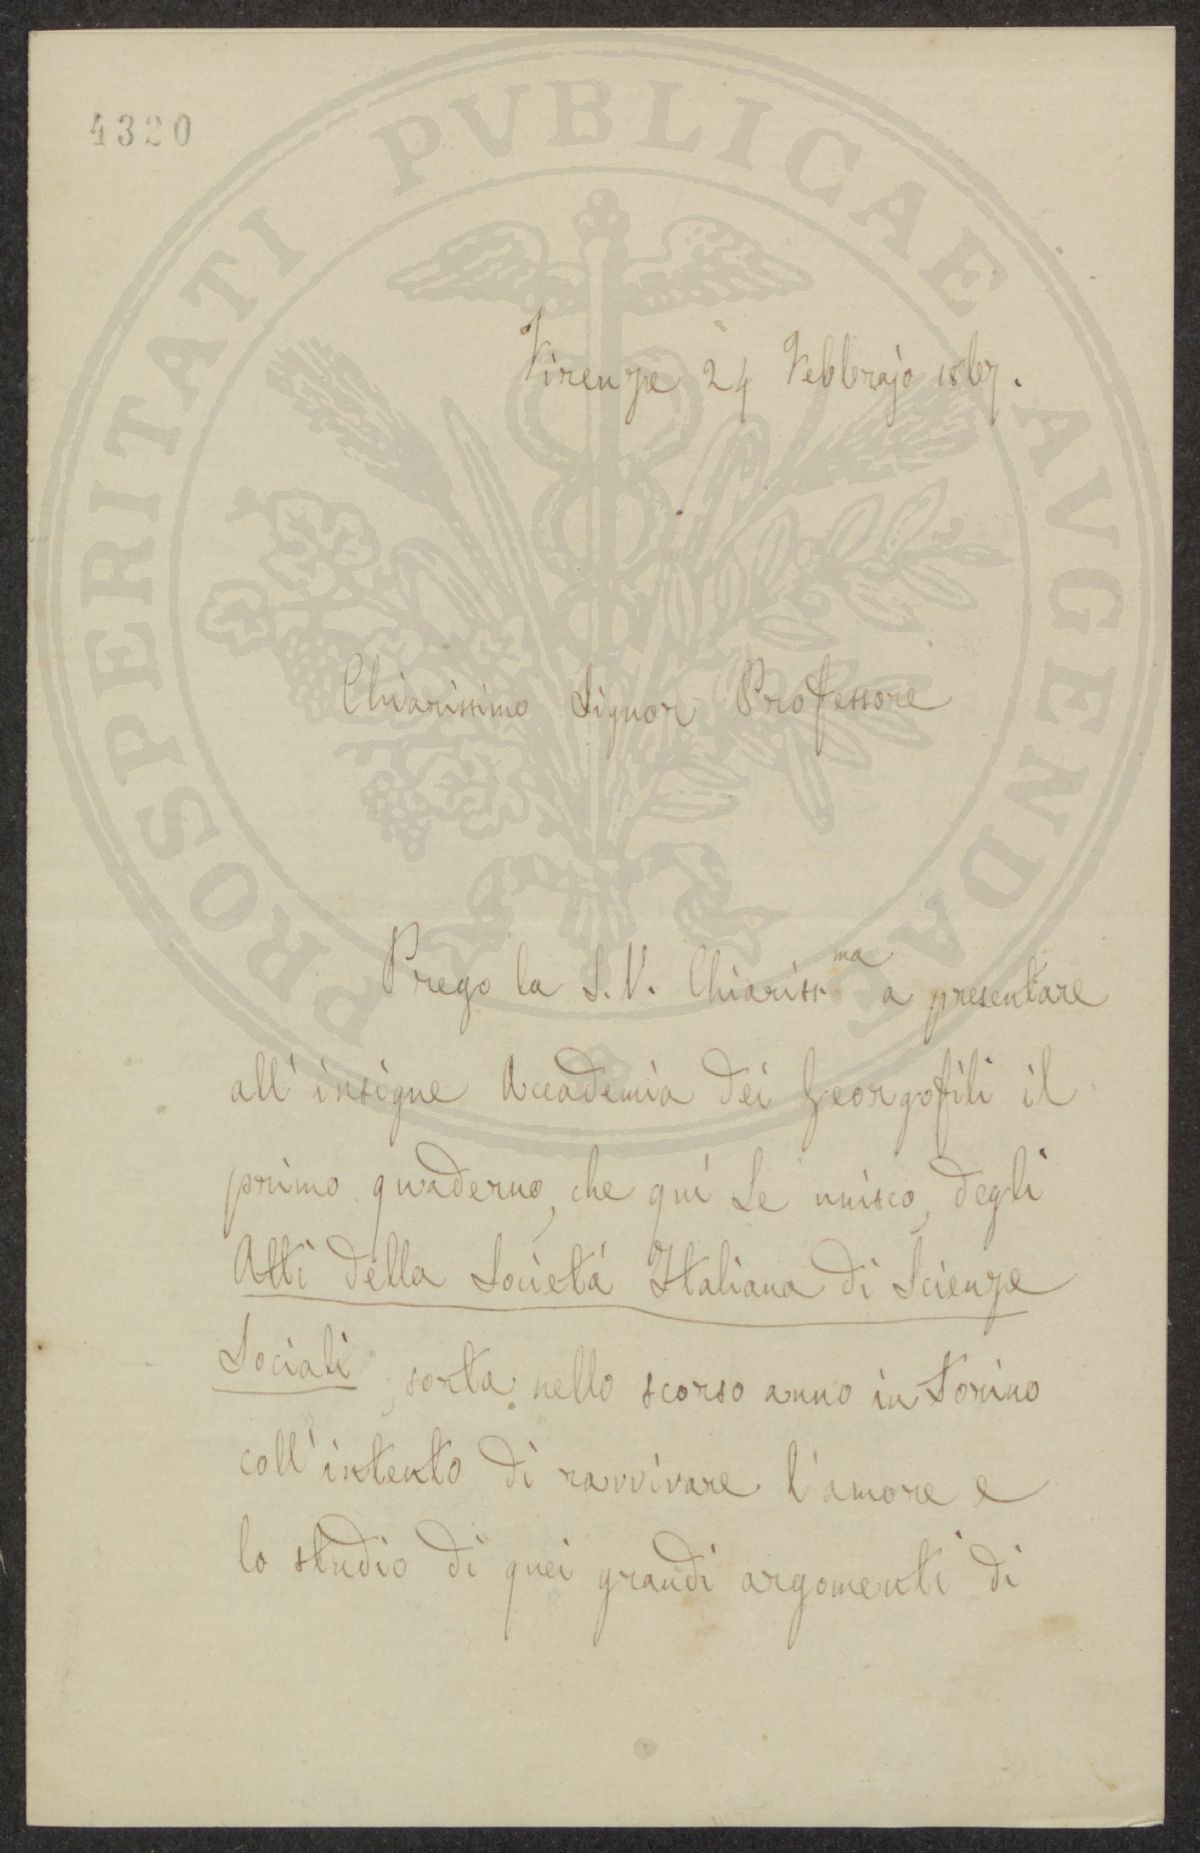 4320
PROSPERITATI PVBLICAE AVGENDAE
Firenze 24 Febbrajo 1867.
Chiarissimo Signor Professore
Prego la S. V. Chiariss.ma a presentare
all'insigne Accademia dei Georgofili il
primo quaderno, che quì Le unisco, degli
Atti della Società Italiana di Scienze
Sociali, sorta nello scorso anno in Torino
coll'intento di ravvivare l'amore e
lo studio di quei grandi argomenti di